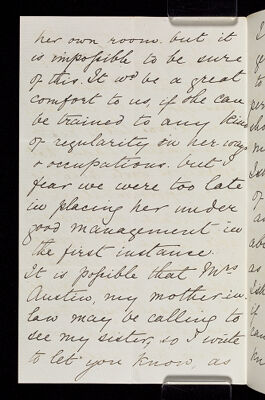 her own room. but it
is impossible to be sure
of this. It wd be a great
comfort to us, if she can
be trained to any kind
of regularity in her ways
& occupations. but I
fear we were too late
in placing her under
good management in
the first instance.
It is possible that Mrs
Austin, my mother in-
law may be calling to
see my sister, so I write
to let you know, as